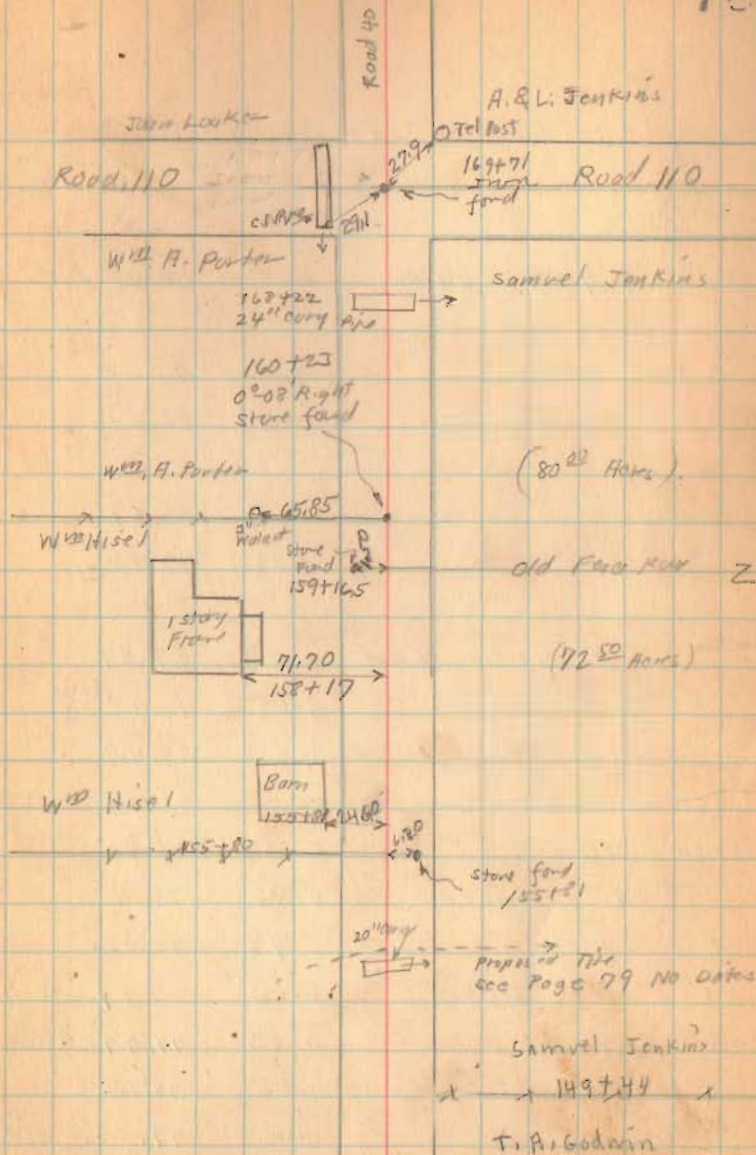 Road 40
A. & L. Jenkins
John Looker
Tel Post
27.9
169+71
Iron
fond
Road 110
Road 110
29.1
Wm A. Porter
Samuel Jenkins
168+22
24" Corg Pipe
160+23
0°-08' Right
Stone found
Wm. A. Porter
(80 00 Acres).
65.85
Wm Hisel
Walnut
Stone
Fond
159+16.5
Old
1 story
Frame
71.70
158+17
(72 50 Acres)
Barn
Wm Hisel
24.60
155+80
Stone fond
155+81
20" Corg
Proposed Tile
See Page 79 No Dates
Samuel Jenkins
149+44
T. A. Godwin